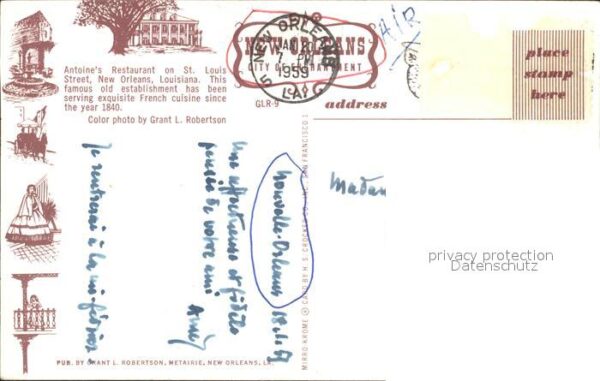 Antoine's Restaurant on St. Louis
Street, New Orleans, Louisiana. This
famous old establishment has been
serving exquisite French cuisine since
the year 1840.
Color photo by Grant L. Robertson
NEW ORLEANS
CITY OF ENCHANTMENT
NEW ORLEANS
PM
1959
LA.
5
GLR-9
address
AIR
place
stamp
here
Nouvelle-Orléans 18.1.59
Une affectueuse et fidèle
pensée de votre ami
Je rentrerai à la mi-février.
Madam
privacy protection
Datenschutz
MIRRO-KROME ® CARD BY H. S. CROCKER CO., INC., SAN FRANCISCO 1
PUB. BY GRANT L. ROBERTSON, METAIRIE, NEW ORLEANS, LA.